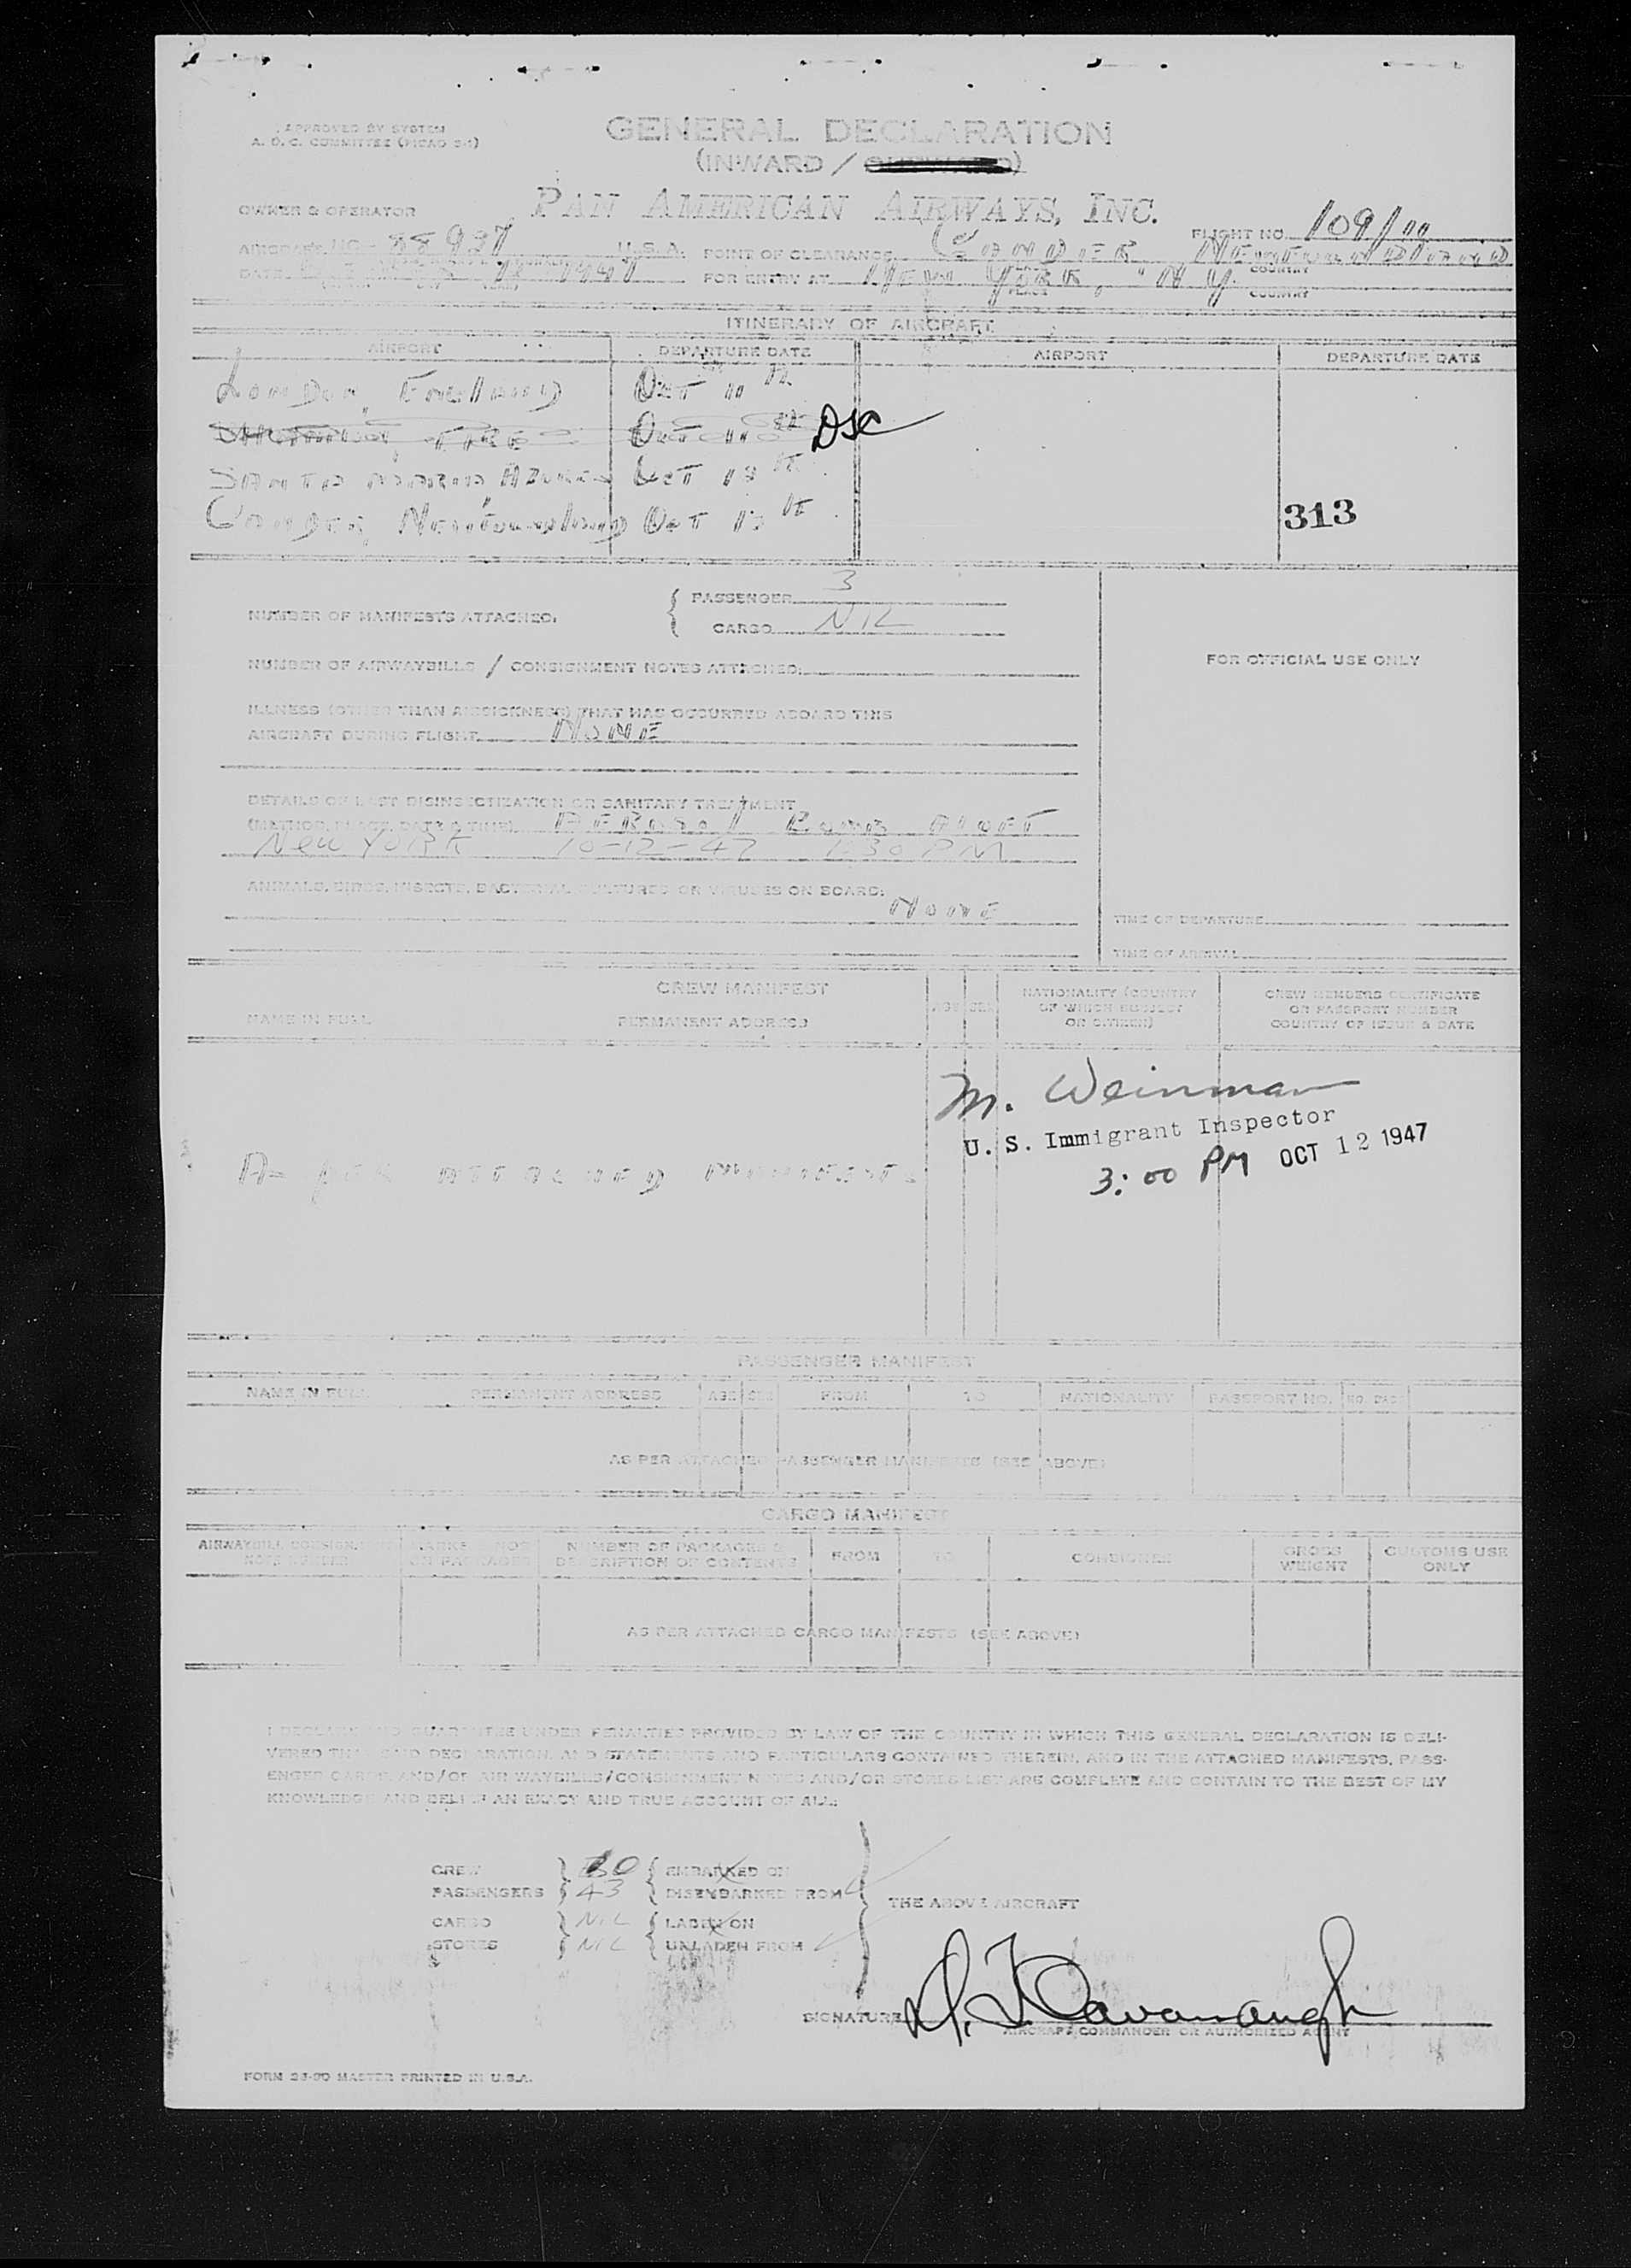 APPROVED BY SYSTEM
A. D. C. COMMITTEE (PICAO 2-1)
GENERAL DECLARATION
(INWARD / OUTWARD)
OWNER & OPERATOR
PAN AMERICAN AIRWAYS, INC.
FLIGHT NO. 109/11
AIRCRAFT NC- 88937 U.S.A. POINT OF CLEARANCE GANDER NEWFOUNDLAND
PLACE COUNTRY
DATE 12 1947 FOR ENTRY AT NEW YORK, N Y.
PLACE COUNTRY
ITINERARY OF AIRCRAFT
AIRPORT DEPARTURE DATE AIRPORT DEPARTURE DATE
LONDON, ENGLAND OCT 11
EIRE OCT DSC
SANTA MARIA, AZORES OCT
GANDER, NEWFOUNDLAND OCT
313
NUMBER OF MANIFESTS ATTACHED. { PASSENGER 3
CARGO NIL
NUMBER OF AIRWAYBILLS / CONSIGNMENT NOTES ATTACHED:
FOR OFFICIAL USE ONLY
ILLNESS (OTHER THAN AIRSICKNESS) THAT HAS OCCURRED ABOARD THIS
AIRCRAFT DURING FLIGHT NONE
DETAILS OF LAST DISINSECTIZATION OR SANITARY TREATMENT
(METHOD, PLACE, DATE & TIME) AEROSOL BOMB ALOFT
NEW YORK 10-12-47 1:30 PM
ANIMALS, BIRDS, INSECTS, BACTERIAL CULTURES OR VIRUSES ON BOARD:
NONE
TIME OF DEPARTURE
TIME OF ARRIVAL
CREW MANIFEST
NAME IN FULL PERMANENT ADDRESS AGE SEX NATIONALITY (COUNTRY OF WHICH SUBJECT OR CITIZEN) CREW MEMBERS CERTIFICATE OR PASSPORT NUMBER COUNTRY OF ISSUE & DATE
M. Weinman
U. S. Immigrant Inspector
3:00 PM OCT 12 1947
AS PER ATTACHED MANIFESTS
PASSENGER MANIFEST
NAME IN FULL PERMANENT ADDRESS AGE SEX FROM TO NATIONALITY PASSPORT NO.
AS PER ATTACHED PASSENGER MANIFESTS (SEE ABOVE)
CARGO MANIFEST
AIRWAYBILL CONSIGN. NOTE NUMBER MARKS NOS ON PACKAGES NUMBER OF PACKAGES & DESCRIPTION OF CONTENTS FROM TO CONSIGNEE GROSS WEIGHT CUSTOMS USE ONLY
AS PER ATTACHED CARGO MANIFESTS (SEE ABOVE)
I DECLARE AND GUARANTEE UNDER PENALTIES PROVIDED BY LAW OF THE COUNTRY IN WHICH THIS GENERAL DECLARATION IS DELI-
VERED THAT SAID DECLARATION, AND STATEMENTS AND PARTICULARS CONTAINED THEREIN, AND IN THE ATTACHED MANIFESTS, PASS-
ENGER CARGO AND/OR AIR WAYBILLS/CONSIGNMENT NOTES AND/OR STORES LIST ARE COMPLETE AND CONTAIN TO THE BEST OF MY
KNOWLEDGE AND BELIEF AN EXACT AND TRUE ACCOUNT OF ALL:
CREW EMBARKED ON
PASSENGERS 43 DISEMBARKED FROM
THE ABOVE AIRCRAFT
CARGO NIL LADEN ON
STORES NIL UNLADEN FROM
SIGNATURE D. J. Cavanaugh
AIRCRAFT COMMANDER OR AUTHORIZED AGENT
FORM 23-90 MASTER PRINTED IN U.S.A.